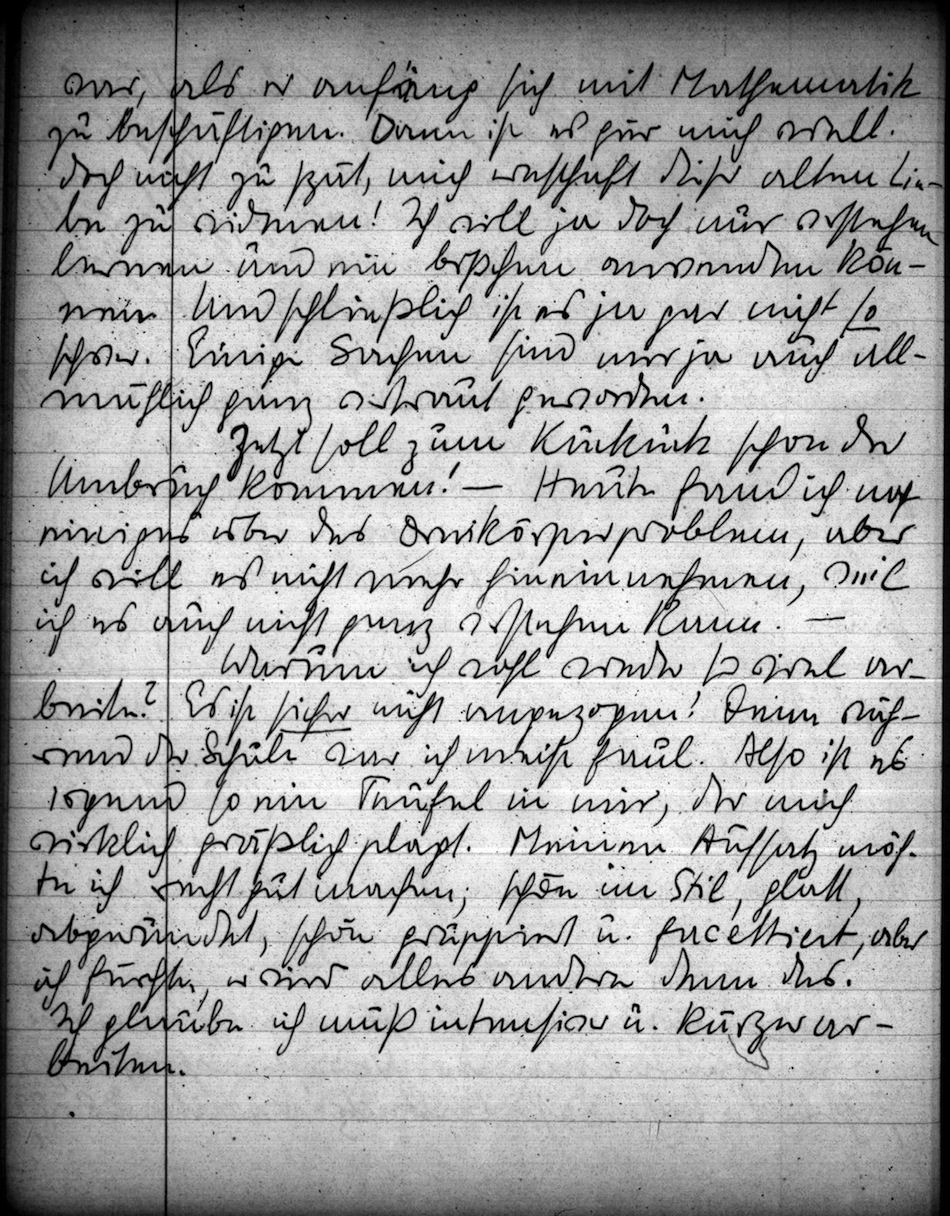 war, als er anfäng sich mit Mathematik
zu beschäftigen. Dann ist es für mich viell.
doch nicht zu spät, mich ernsthaft dieser alten Lie-
be zu widmen! Ich will ja doch nur verstehen
lernen und ein bißchen anwenden kön-
nen. Und schließlich ist es ja gar nicht so
schwer. Einige Sachen sind mir ja auch all-
mählich ganz vertraut geworden.
Jetzt soll zum Kuckuck schon der
Umbruch kommen! — Heute fand ich noch
einiges über das Dreikörperproblem, aber
ich will es nicht mehr hineinnehmen, weil
ich es auch nicht ganz verstehen kann. —
Warum ich wohl wieder so viel ar-
beite? Es ist sicher nicht angezogen! Denn wäh-
rend der Schule war ich meist faul. Also ist es
irgend so ein Teufel in mir, der mich
wirklich gräßlich plagt. Meinen Aufsatz möch-
te ich recht gut machen, schön im Stil, glatt,
abgerundet, schön gruppiert u. facettiert, aber
ich fürchte, er wird alles andere denn das.
Ich glaube ich muß intensiver u. kürzer ar-
beiten.